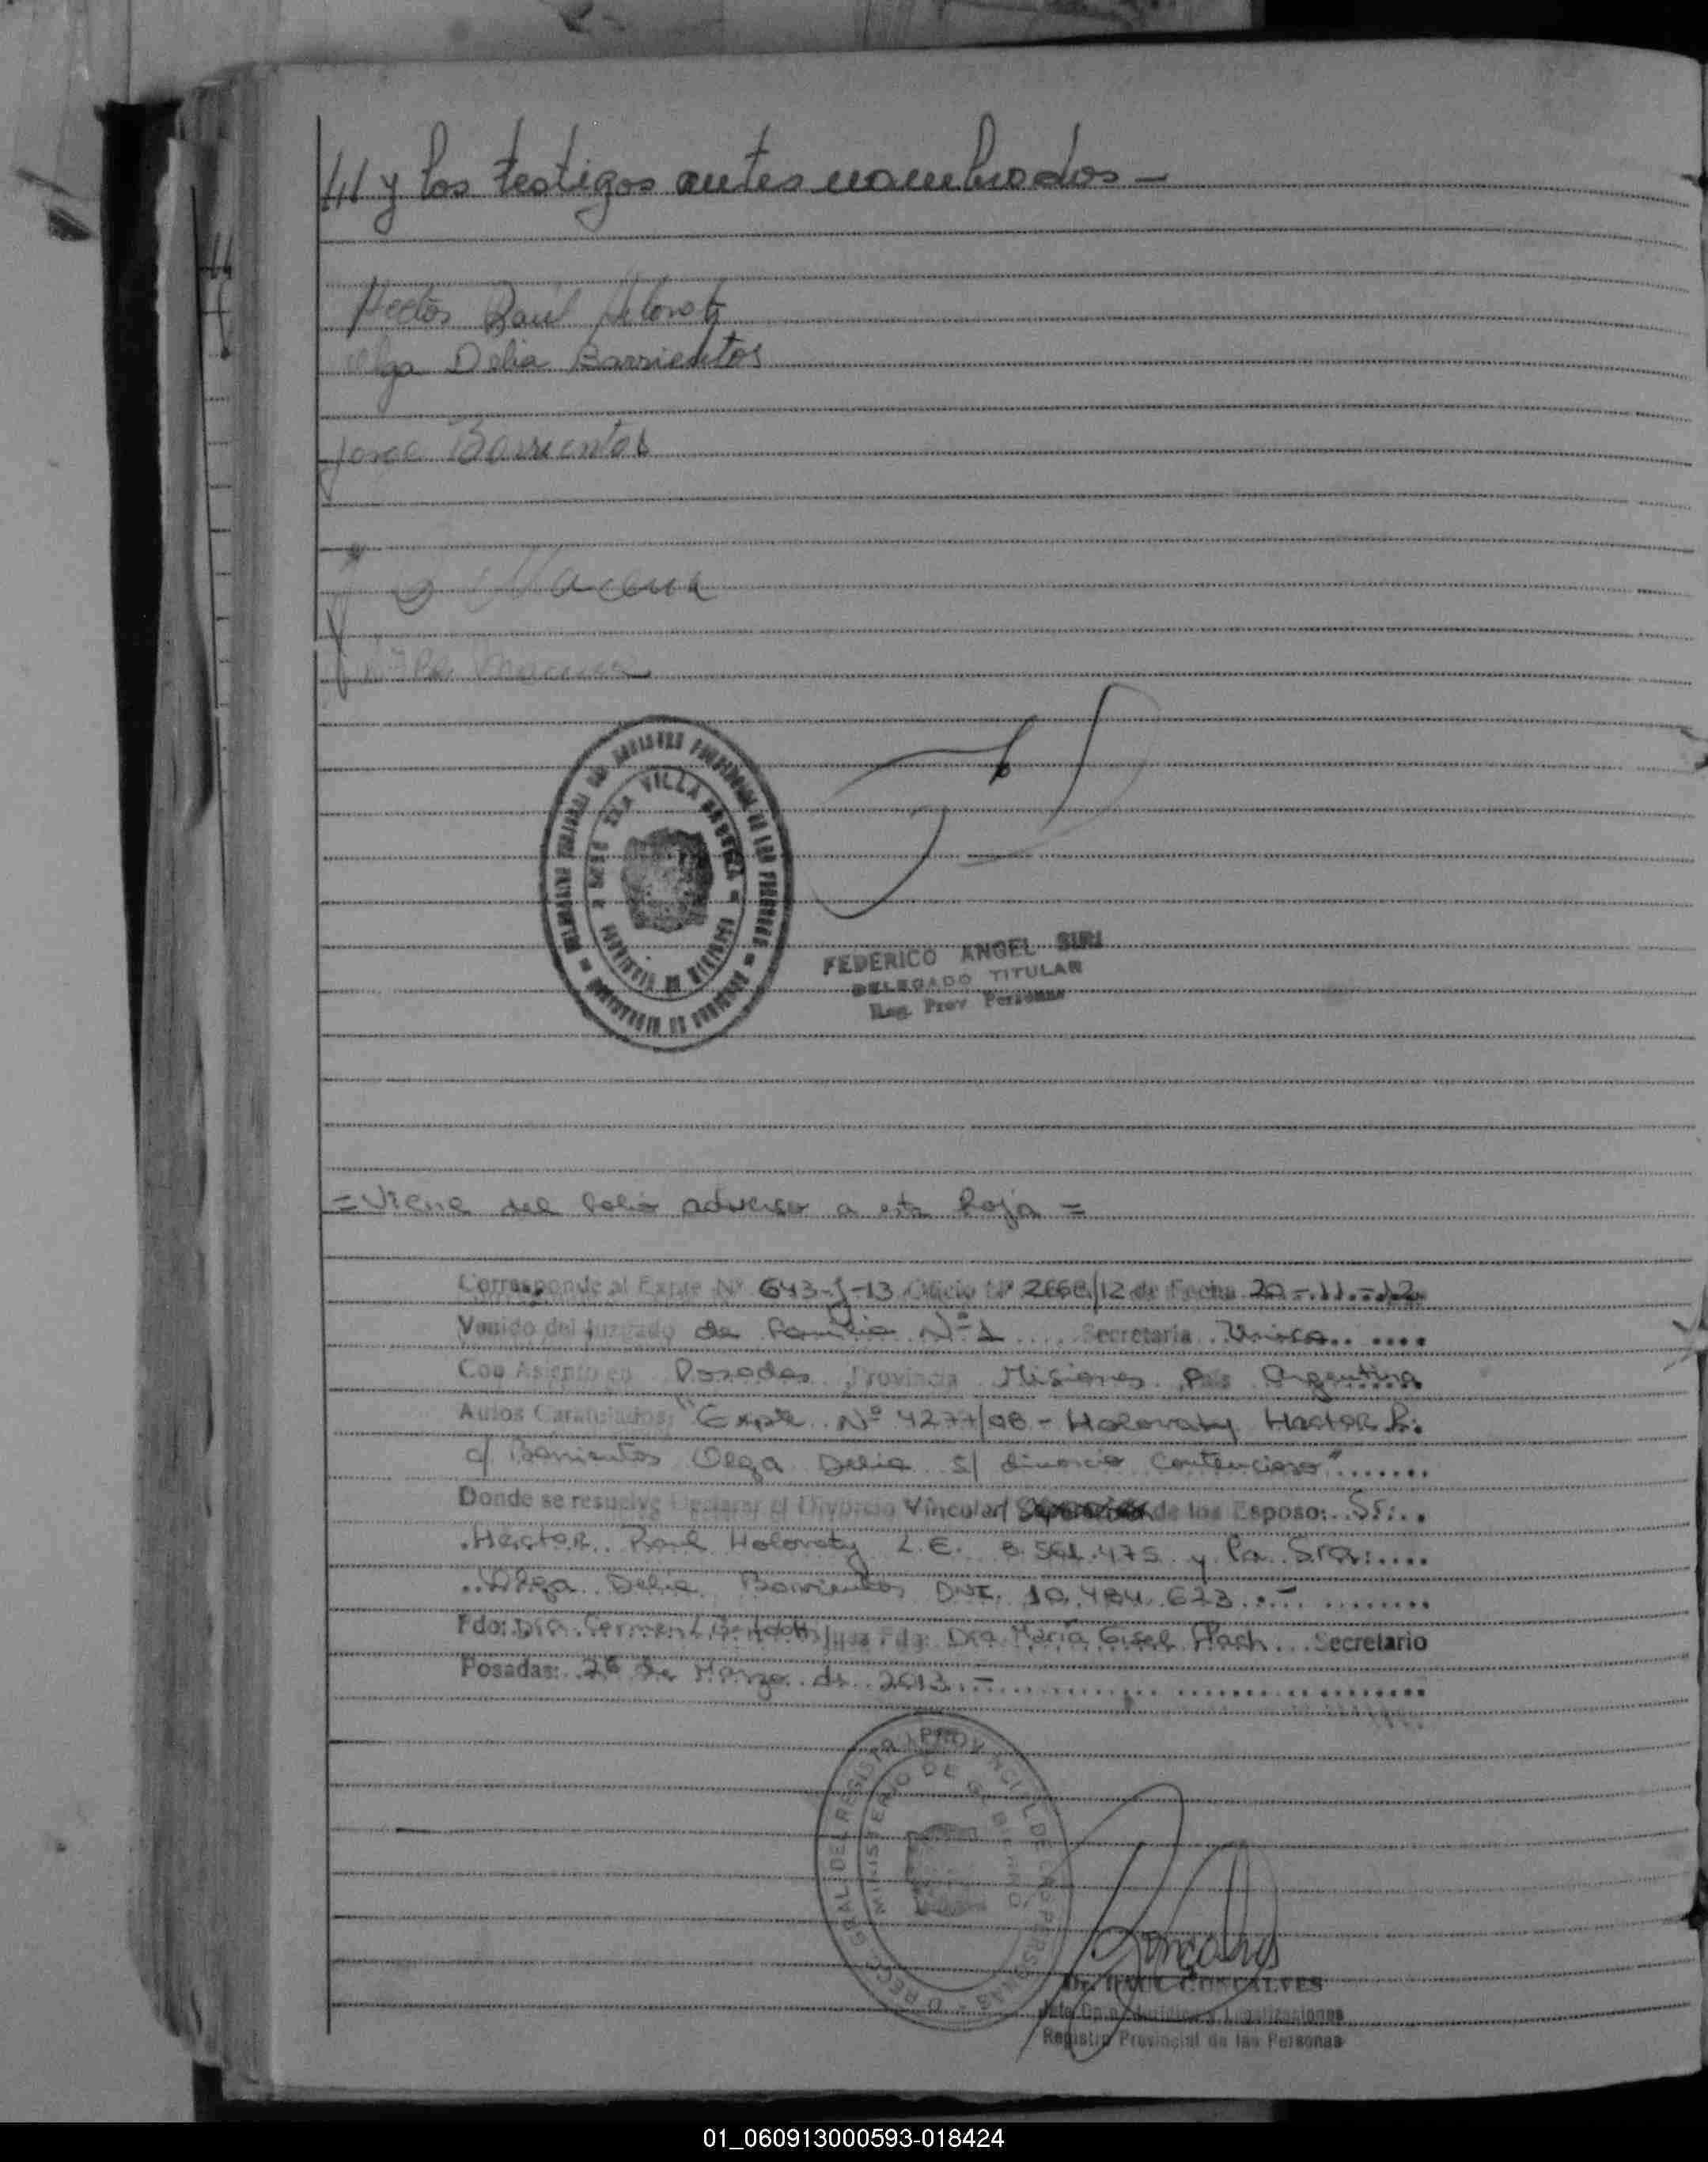 /// y los testigos antes nombrados -
Hector Raúl Holovaty
Olga Delia Barrientos
Jorge Barrientos
VILLA
FEDERICO ANGEL SIRI
DELEGADO TITULAR
Reg. Prov. Personas
= Viene del folio adverso a esta hoja =
Corresponde al Expte Nº 643-J-13 Oficio Nº 2668/12 de Fecha 20-11-12
Venido del Juzgado de Familia Nº 1 Secretaría Unica
Con Asiento en Posadas Provincia Misiones País Argentina
Autos Caratulados: "Expte Nº 4277/08 - Holovaty Hector R.
c/ Barrientos Olga Delia s/ divorcio contencioso"
Donde se resuelve Declarar el Divorcio Vincular/ de los Esposo: Sr:
Hector Raul Holovaty L.E. 8.561.475 y la Sra:
Olga Delia Barrientos DNI. 10.484.623.-
Fdo: Dra. Carmen Juez Fdo: Dra María Gisel Secretario
Posadas: 26 de Marzo de 2013.-
DIREC. GRAL. DEL REGISTRO PROVINCIAL DE LAS PERSONAS
MINISTERIO DE GOBIERNO
Dr. RAUL GONCALVES
Jefe Dpto. Jurídico y Legalizaciones
Registro Provincial de las Personas
01_060913000593-018424